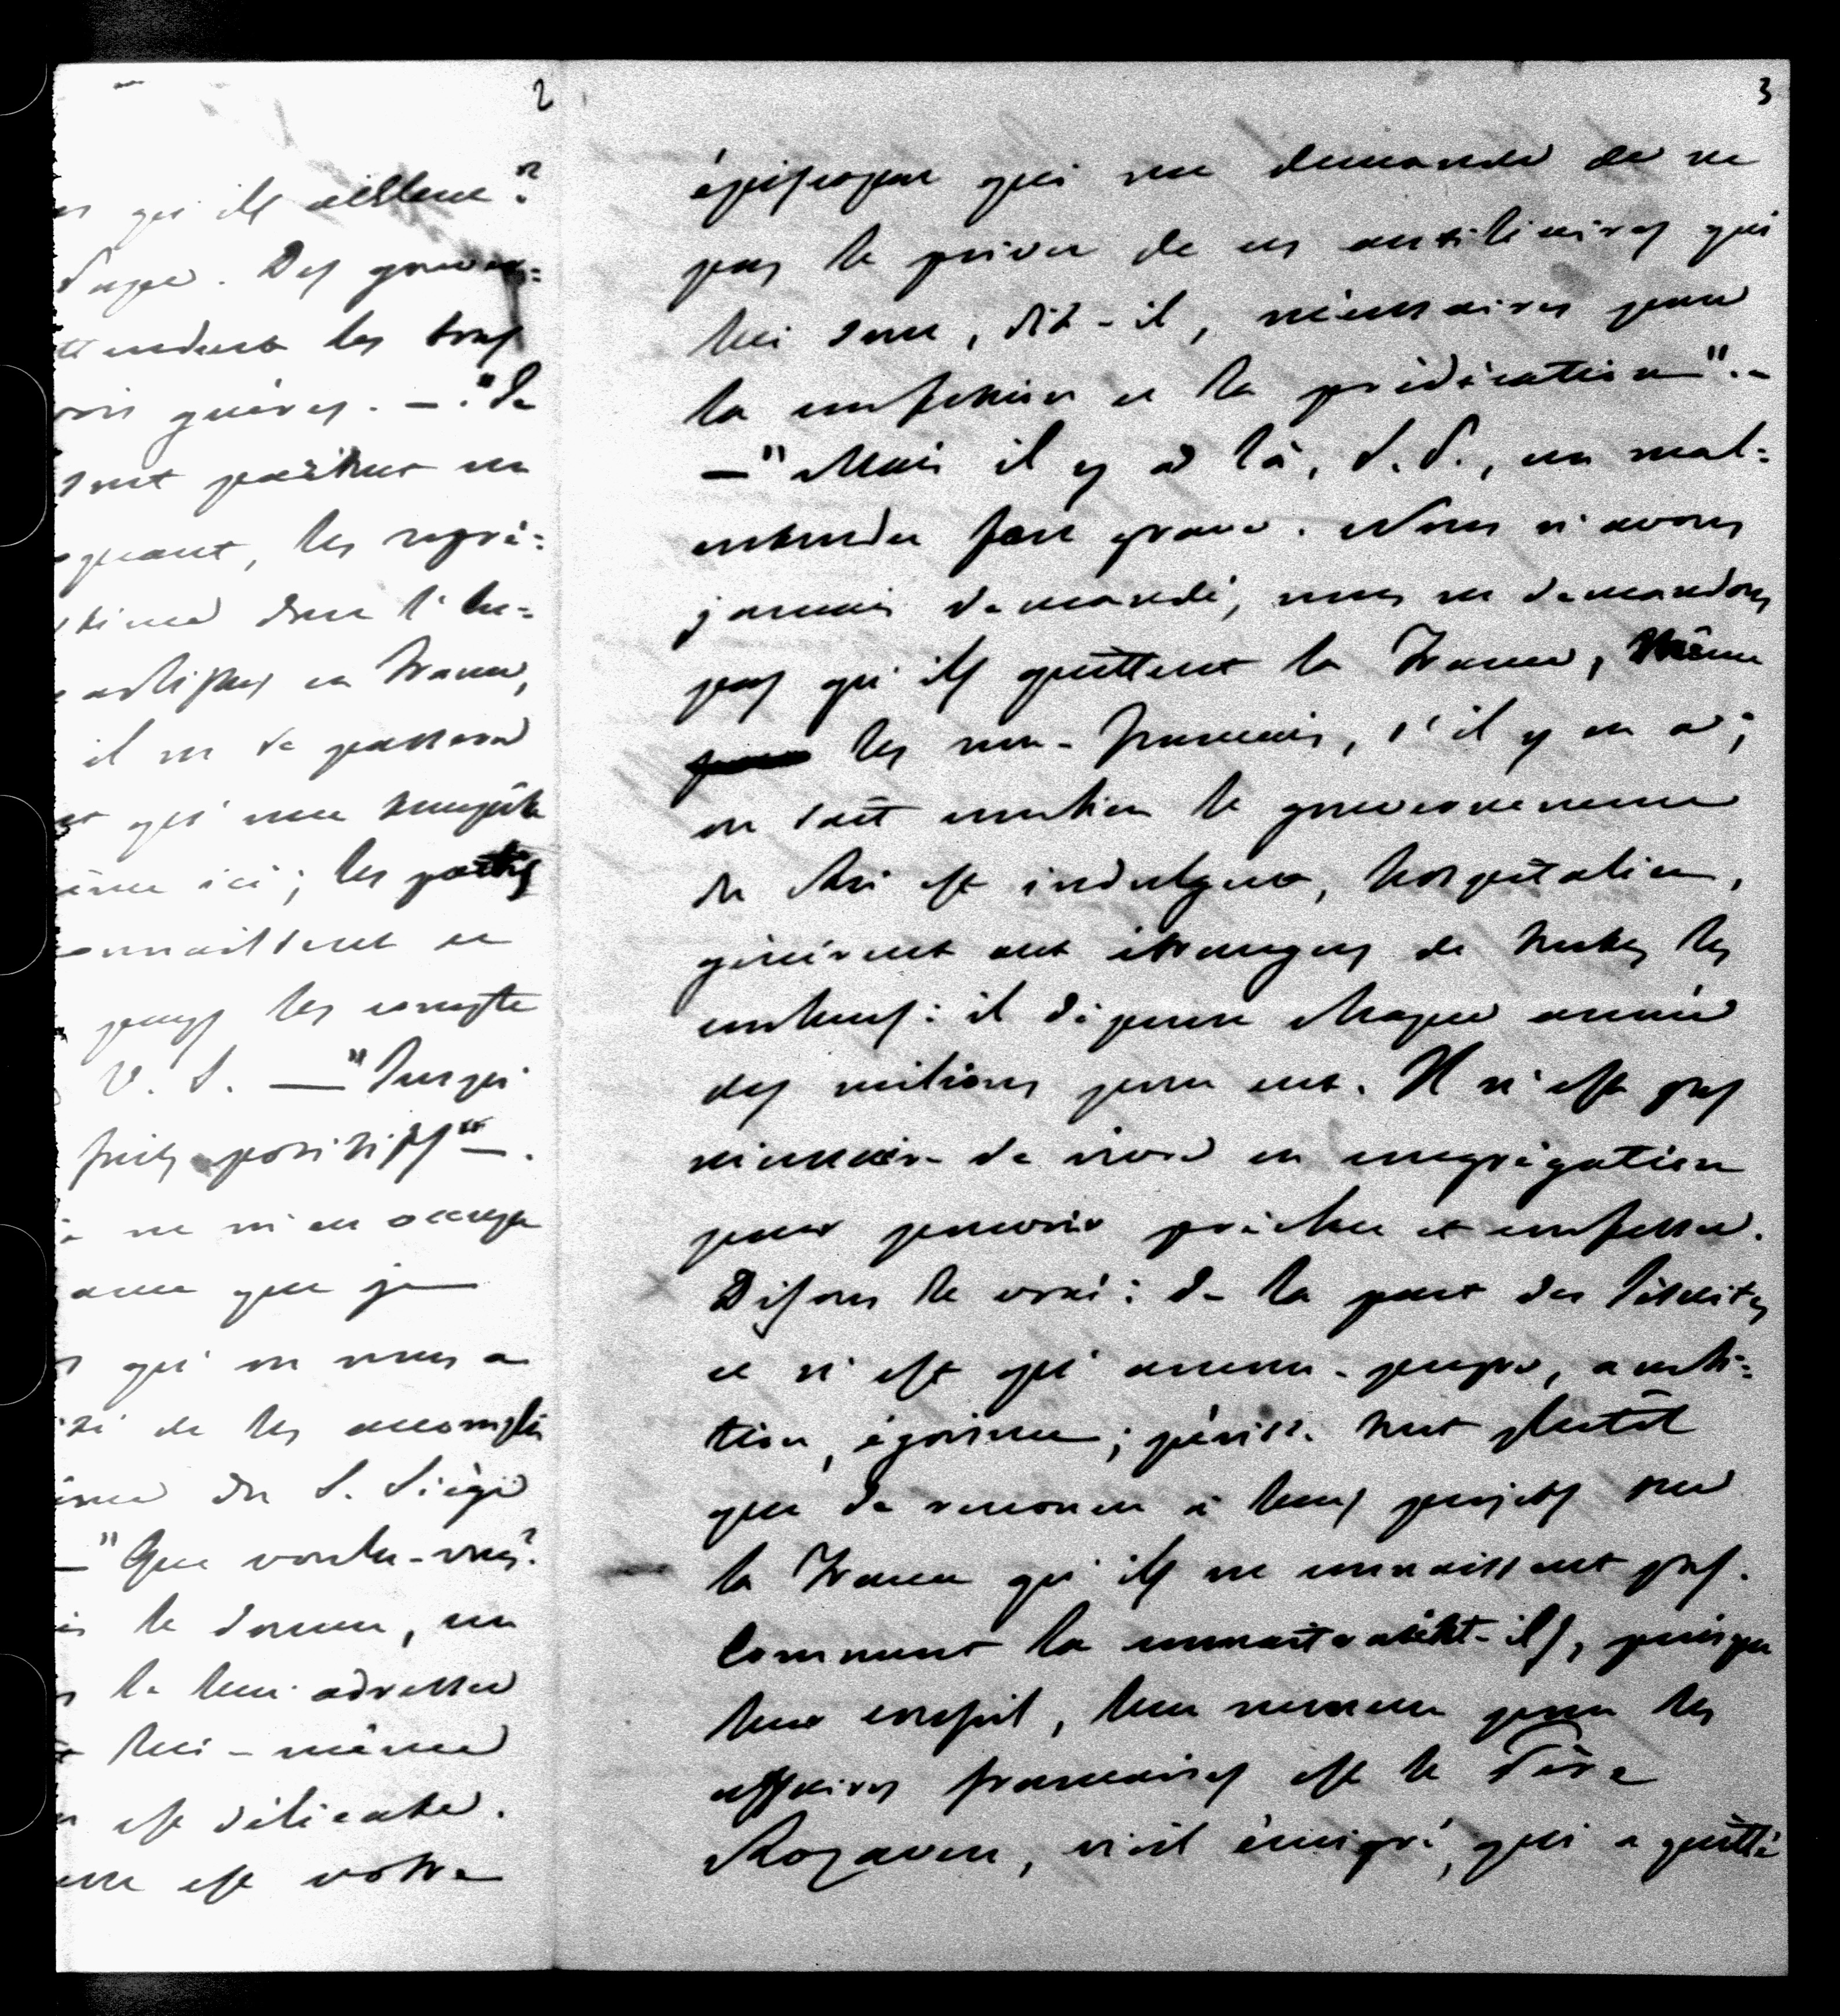 2
qu'ils veulent?
Pape. Des gouver=
attendent les bras
guères. — "Je
sont partout en
les repré=
dans l'hu=
catholiques en France,
il ne se passera
qu'une tempête
ici; les partis
connaissent et
pays les compte
V. S. — "Jusqu'
faits positifs" —.
à ne m'en occuper
que je
qu'on nous a
de les accomplir
du S. Siège
— "Que voulez-vous?
le donner, un
de leur adresser
lui-même
est délicate.
est votre
3
épiscopat qui me demande de ne
pas le priver de ces auxiliaires qui
lui sont, dit-il, nécessaires pour
la confession et la prédication". -
— "Mais il y a là, S. P., un mal=
entendu fort grave. Nous n'avons
jamais demandé, nous ne demandons
pas qu'ils quittent la France, même
les non-français, s'il y en a;
on sait combien le gouvernement
du Roi est indulgent, hospitalier,
généreux aux étrangers de toutes les
couleurs: il dépense chaque année
des millions pour eux. Il n'est pas
nécessaire de vivre en congrégation
pour pouvoir prêcher et confesser.
Disons le vrai: de la part des Jésuites
ce n'est qu'amour-propre, ambi=
tion, égoïsme; périsse tout plutôt
que de renoncer à leurs projets sur
la France qu'ils ne connaissent pas.
Comment la connaîtraient-ils, puisque
leur conseil, leur meneur pour les
affaires françaises est le Père
Rozaven, vieil émigré, qui a quitté